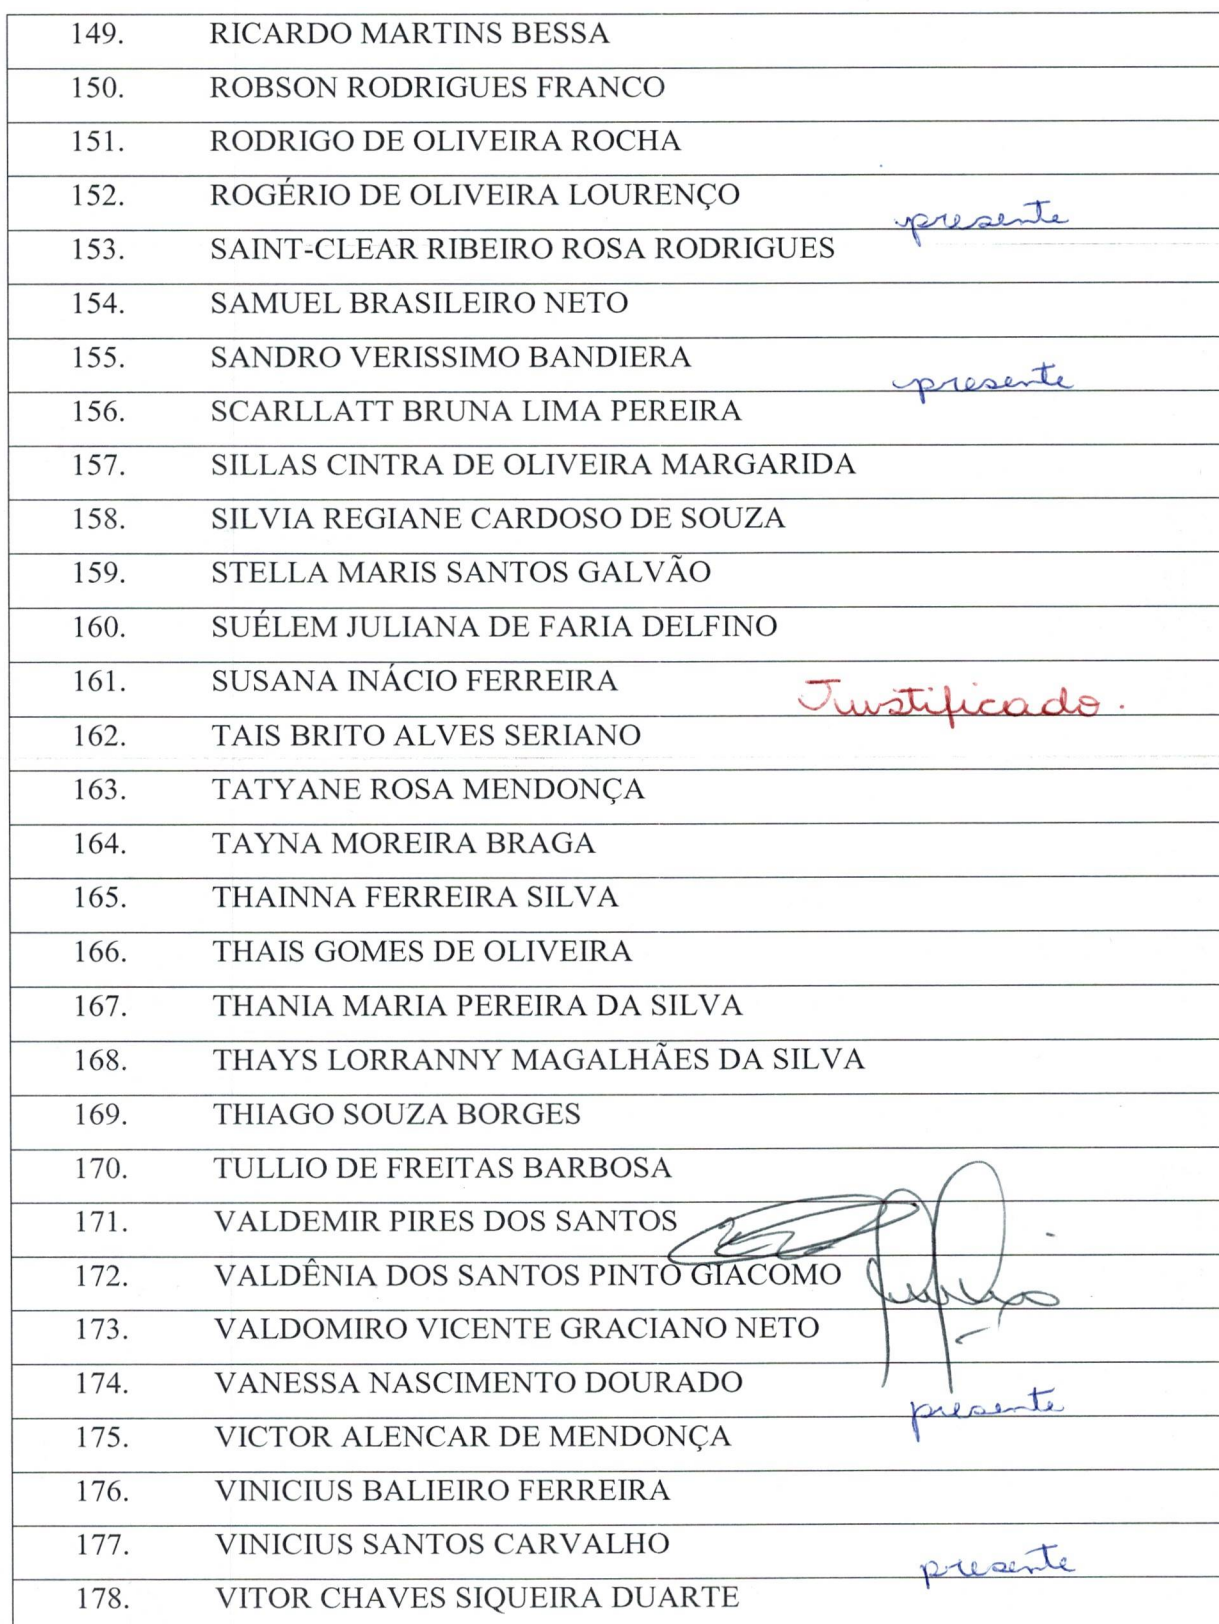 149. RICARDO MARTINS BESSA
150. ROBSON RODRIGUES FRANCO
151. RODRIGO DE OLIVEIRA ROCHA
152. ROGÉRIO DE OLIVEIRA LOURENÇO presente
153. SAINT-CLEAR RIBEIRO ROSA RODRIGUES
154. SAMUEL BRASILEIRO NETO
155. SANDRO VERISSIMO BANDIERA presente
156. SCARLLATT BRUNA LIMA PEREIRA
157. SILLAS CINTRA DE OLIVEIRA MARGARIDA
158. SILVIA REGIANE CARDOSO DE SOUZA
159. STELLA MARIS SANTOS GALVÃO
160. SUÉLEM JULIANA DE FARIA DELFINO
161. SUSANA INÁCIO FERREIRA Justificado.
162. TAIS BRITO ALVES SERIANO
163. TATYANE ROSA MENDONÇA
164. TAYNA MOREIRA BRAGA
165. THAINNA FERREIRA SILVA
166. THAIS GOMES DE OLIVEIRA
167. THANIA MARIA PEREIRA DA SILVA
168. THAYS LORRANNY MAGALHÃES DA SILVA
169. THIAGO SOUZA BORGES
170. TULLIO DE FREITAS BARBOSA
171. VALDEMIR PIRES DOS SANTOS
172. VALDÊNIA DOS SANTOS PINTO GIACOMO
173. VALDOMIRO VICENTE GRACIANO NETO
174. VANESSA NASCIMENTO DOURADO presente
175. VICTOR ALENCAR DE MENDONÇA
176. VINICIUS BALIEIRO FERREIRA
177. VINICIUS SANTOS CARVALHO presente
178. VITOR CHAVES SIQUEIRA DUARTE